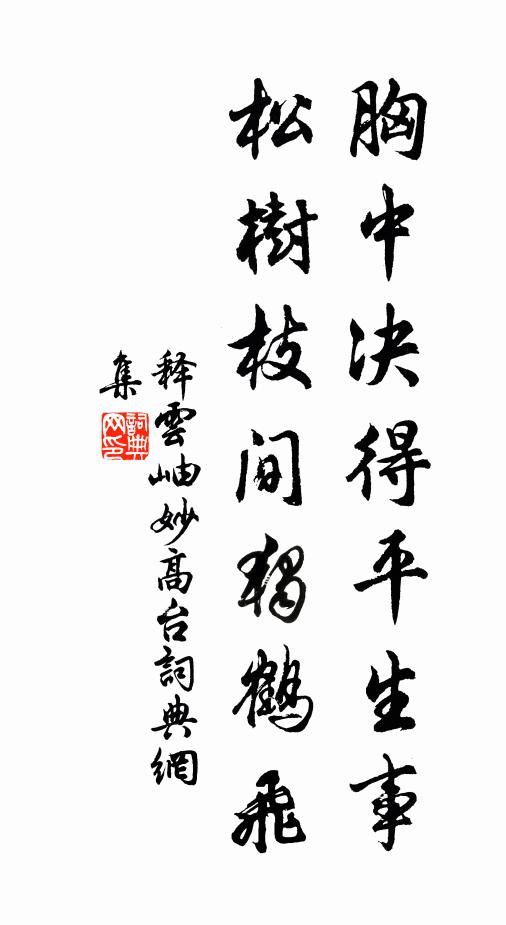 胸中决得平生事
松樹枝间独鶴飛
释雲岫妙高台詞典網
集
詞典网印